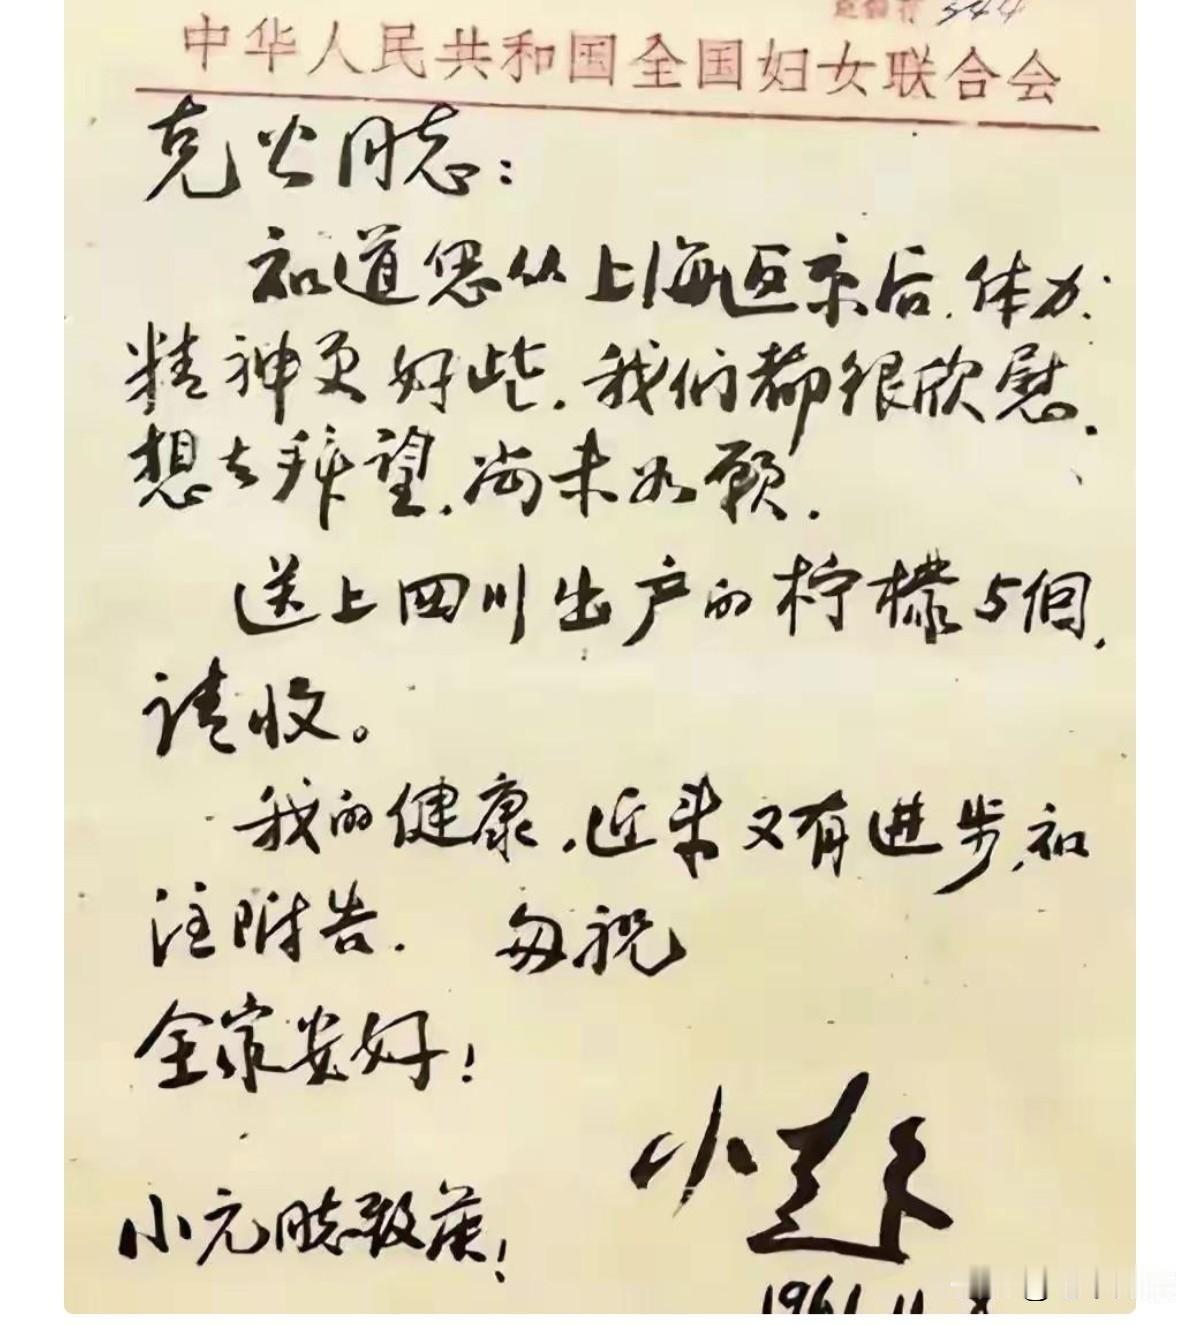 544
中华人民共和国全国妇女联合会
克公同志：
知道您从上海返京后.体力.
精神更好些.我们都很欣慰.
想去拜望.尚未如愿.
送上四川出产的柠檬5個,
请收。
我的健康.近来又有进步,知
注附告. 匆祝
全家安好！
小超
小元同志致候！
1961.11.8